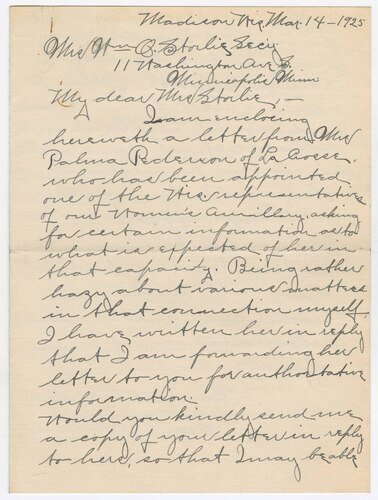 Madison Wis. Mar. 14 - 1925
Mrs Wm O. Storlie, Secy
11 Washington Ave S.
Minneapolis Minn
My dear Mrs Storlie, -
I am enclosing
herewith a letter from Mrs
Palma Pederson of La Crosse,
who has been appointed
one of the Wis. representatives
of our Women's Auxillery, asking
for certain information as to
what is expected of her in
that capacity. Being rather
hazy about various matters
in that connection myself,
I have written her in reply
that I am forwarding her
letter to you for authoritative
information.
Would you kindly send me
a copy of your letter in reply
to hers, so that I may be able